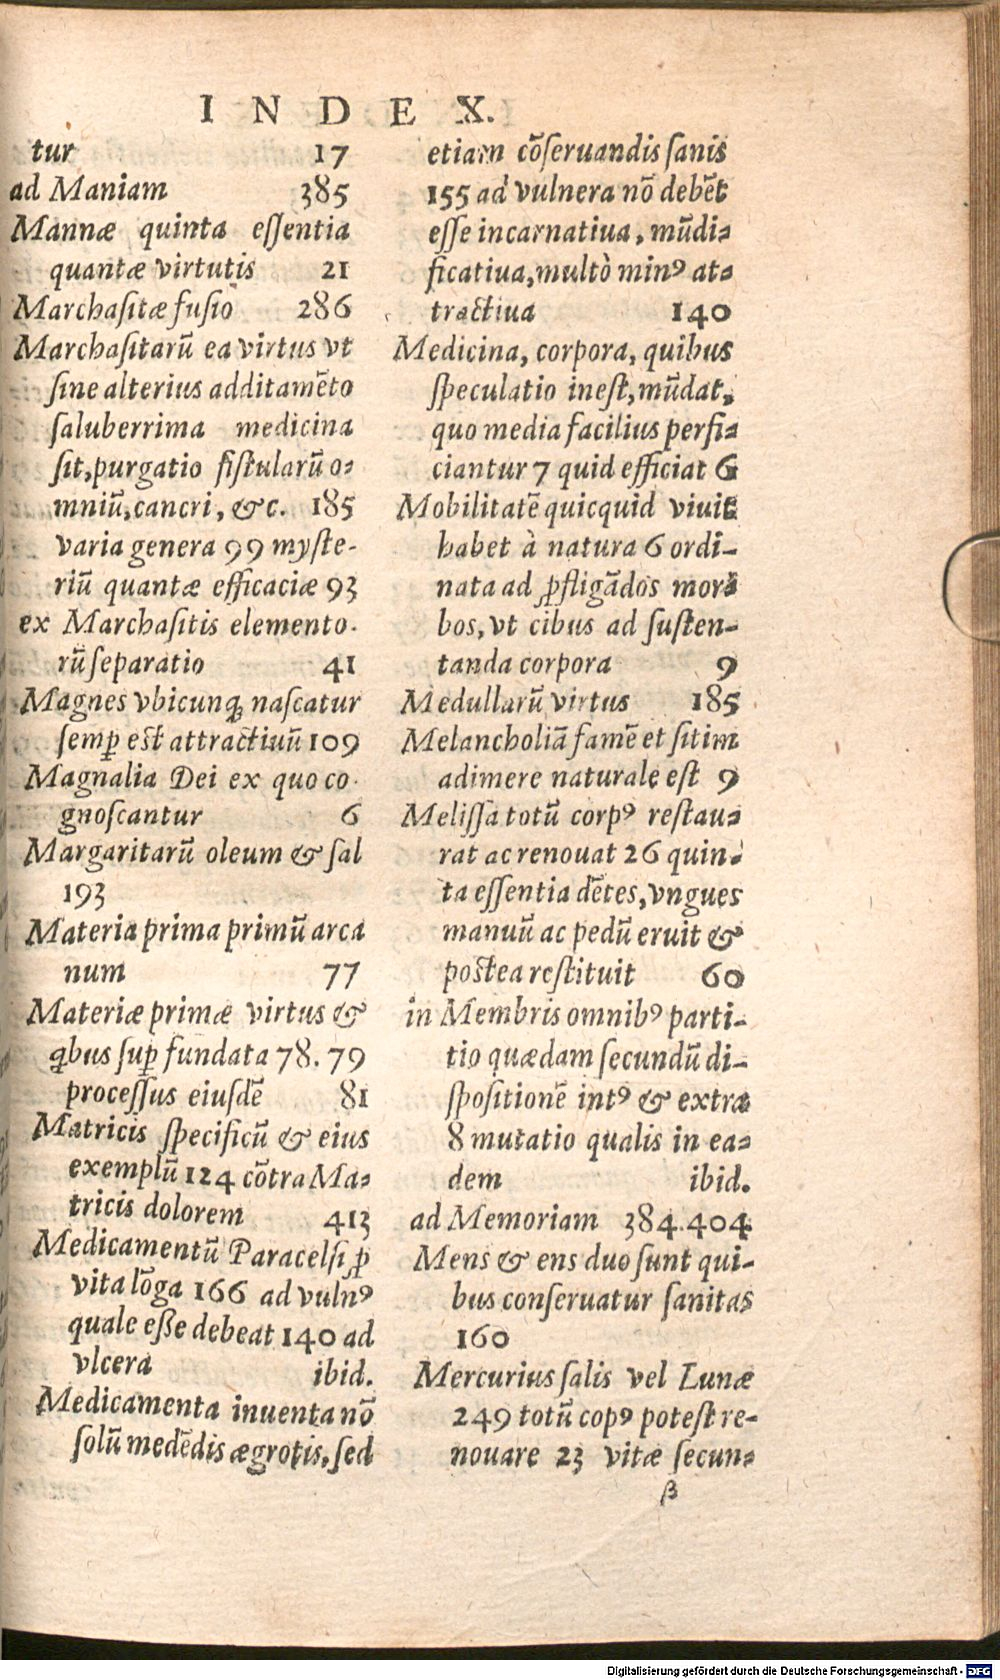 INDEX.
tur 17
ad Maniam 385
Mannæ quinta eſſentia
quantæ virtutis 21
Marchaſitæ fuſio 286
Marchaſitarū ea virtus vt
ſine alterius additamēto
ſaluberrima medicina
ſit, purgatio fiſtularū o-
mniū, cancri, &c. 185
varia genera 99 myſte-
riū quantæ efficaciæ 93
ex Marchaſitis elemento-
rū ſeparatio 41
Magnes vbicunq; naſcatur
ſemp̱ eſt attractiuū 109
Magnalia Dei ex quo co-
gnoſcantur 6
Margaritarū oleum & ſal
193
Materia prima primū arca
num 77
Materiæ primæ virtus &
q̃bus ſup̱ fundata 78. 79
proceſſus eiuſdē 81
Matricis ſpecificū & eius
exemplū 124 cōtra Ma-
tricis dolorem 413
Medicamentū Paracelſi p̱
vita lōga 166 ad vulnꝰ
quale eße debeat 140 ad
vlcera ibid.
Medicamenta inuenta nō
ſolū medēdis ægrotis, ſed
etiam cōſeruandis ſanis
155 ad vulnera nō debēt
eſſe incarnatiua, mūdi-
ficatiua, multò minꝰ at-
tractiua 140
Medicina, corpora, quibus
ſpeculatio ineſt, mūdat,
quo media facilius perfi-
ciantur 7 quid efficiat 6
Mobilitatē quicquid viuit
habet à natura 6 ordi-
nata ad ꝓfligādos mor-
bos, vt cibus ad ſuſten-
tanda corpora 9
Medullarū virtus 185
Melancholiā famē et ſitim
adimere naturale eſt 9
Meliſſa totū corpꝰ reſtau-
rat ac renouat 26 quin-
ta eſſentia dētes, vngues
manuū ac pedū eruit &
poſtea reſtituit 60
in Membris omnibꝰ parti-
tio quædam ſecundū di-
ſpoſitionē intꝰ & extra
8 mutatio qualis in ea-
dem ibid.
ad Memoriam 384. 404
Mens & ens duo ſunt qui-
bus conſeruatur ſanitas
160
Mercurius ſalis vel Lunæ
249 totū copꝰ poteſt re-
nouare 23 vitæ ſecun-
β
Digitalisierung gefördert durch die Deutsche Forschungsgemeinschaft - DFG